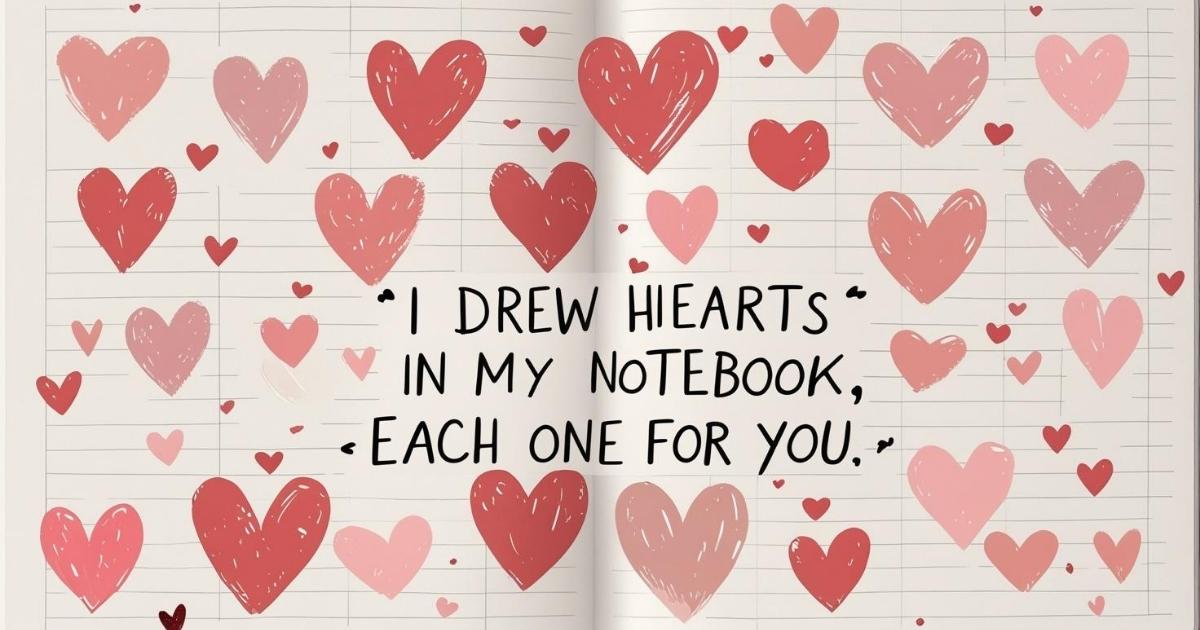 “I DREW HIEARTS“
IN MY NOTEBOOK,
EACH ONE FOR YOU.